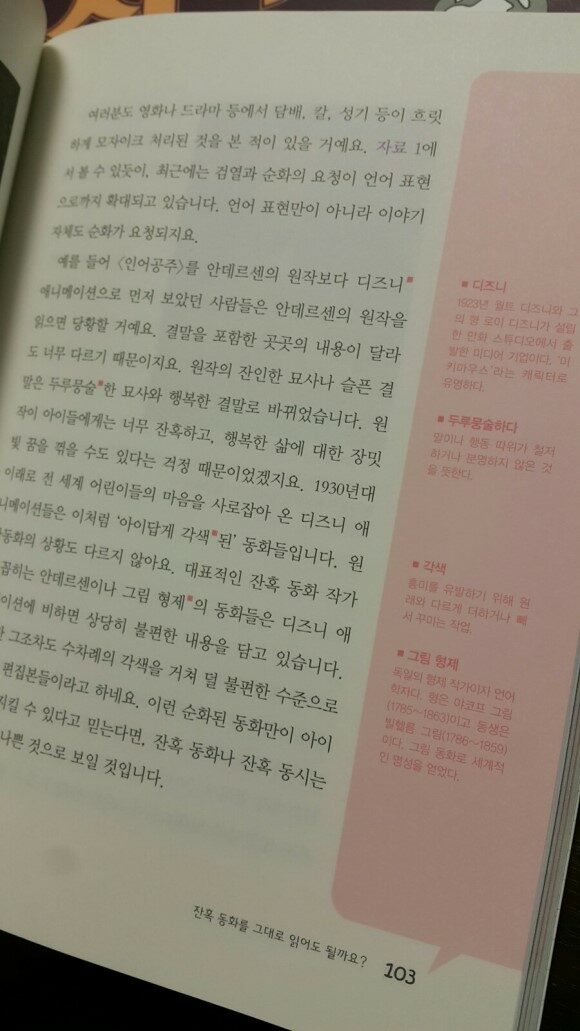 여러분도 영화나 드라마 등에서 담배, 칼, 성기 등이 흐릿
하게 모자이크 처리된 것을 본 적이 있을 거예요. 자료 1에
서 볼 수 있듯이, 최근에는 검열과 순화의 요청이 언어 표현
으로까지 확대되고 있습니다. 언어 표현만이 아니라 이야기
자체도 순화가 요청되지요.
예를 들어 〈인어공주〉를 안데르센의 원작보다 디즈니
애니메이션으로 먼저 보았던 사람들은 안데르센의 원작을
읽으면 당황할 거예요. 결말을 포함한 곳곳의 내용이 달라
도 너무 다르기 때문이지요. 원작의 잔인한 묘사나 슬픈 결
말은 두루뭉술한 묘사와 행복한 결말로 바뀌었습니다. 원
작이 아이들에게는 너무 잔혹하고, 행복한 삶에 대한 장밋
빛 꿈을 꺾을 수도 있다는 걱정 때문이었겠지요. 1930년대
이래로 전 세계 어린이들의 마음을 사로잡아 온 디즈니 애
니메이션들은 이처럼 '아이답게 각색된' 동화들입니다. 원
동화의 상황도 다르지 않아요. 대표적인 잔혹 동화 작가
꼽히는 안데르센이나 그림 형제의 동화들은 디즈니 애
이션에 비하면 상당히 불편한 내용을 담고 있습니다.
그조차도 수차례의 각색을 거쳐 덜 불편한 수준으로
편집본들이라고 하네요. 이런 순화된 동화만이 아이
킬 수 있다고 믿는다면, 잔혹 동화나 잔혹 동시는
나쁜 것으로 보일 것입니다.
■ 디즈니
1923년 월트 디즈니와 그
의 형 로이 디즈니가 설립
한 만화 스튜디오에서 출
발한 미디어 기업이다. '미
키마우스'라는 캐릭터로
유명하다.
■ 두루뭉술하다
말이나 행동 따위가 철저
하거나 분명하지 않은 것
을 뜻한다.
■ 각색
흥미를 유발하기 위해 원
래와 다르게 더하거나 빼
서 꾸미는 작업.
■ 그림 형제
독일의 형제 작가이지 언어
학자다. 형은 야코프 그림
(1785~1863)이고 동생은
빌헬름 그림(1786~1859)
이다. 그림 동화로 세계적
인 명성을 얻었다.
잔혹 동화를 그대로 읽어도 될까요? 103